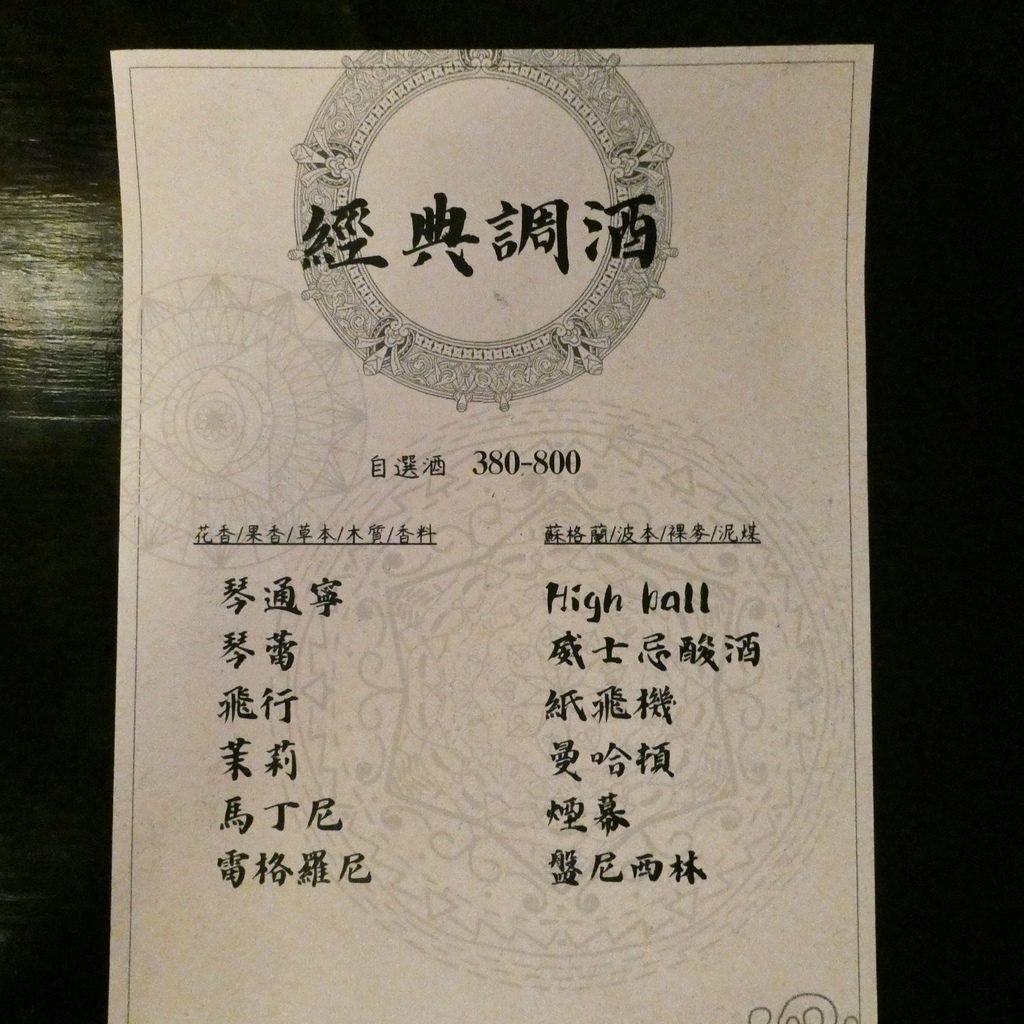 經典調酒
自選酒 380-800
花香/果香/草本/木質/香料
琴通寧
琴蕾
飛行
茉莉
馬丁尼
雷格羅尼
蘇格蘭/波本/裸麥/泥煤
High ball
威士忌酸酒
紙飛機
曼哈頓
煙幕
盤尼西林